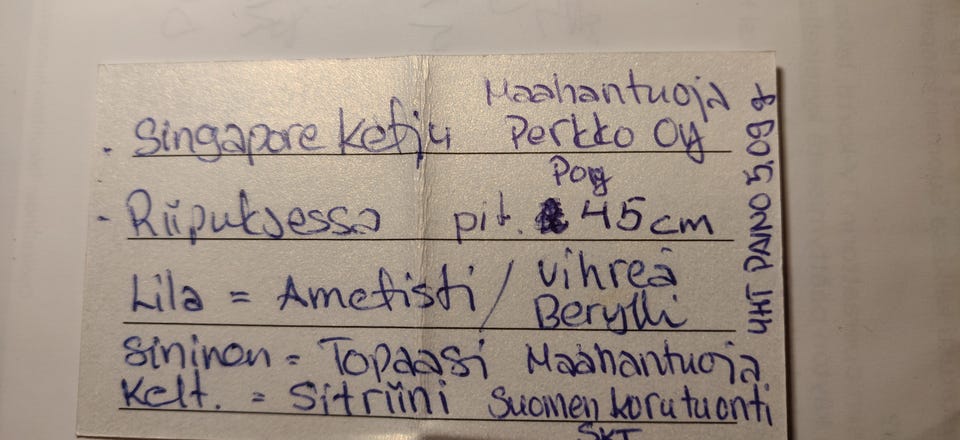 Maahantuoja
- Singapore Ketju Perkko Oy
Poy
- Riipuksessa pit. 45cm
Lila = Ametisti / Vihreä
Berylli
Sininen = Topaasi Maahantuoja
Kelt. = Sitriini Suomen korutuonti
SKT
YHT PAINO 5,09g